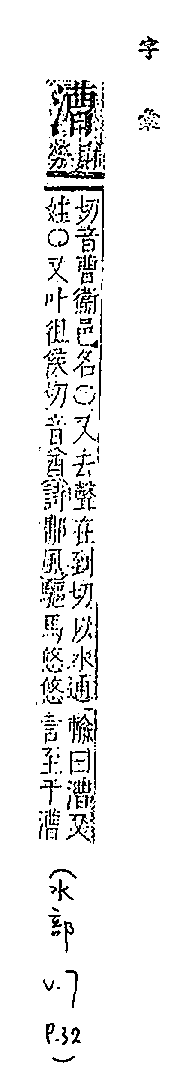 字彙
漕
財勞
切音曹衛邑名○又去聲在到切以水通輸曰漕又
姓○又叶徂侯切音酋詩鄘風驅馬悠悠言至于漕
(水部 V.7 P.32)